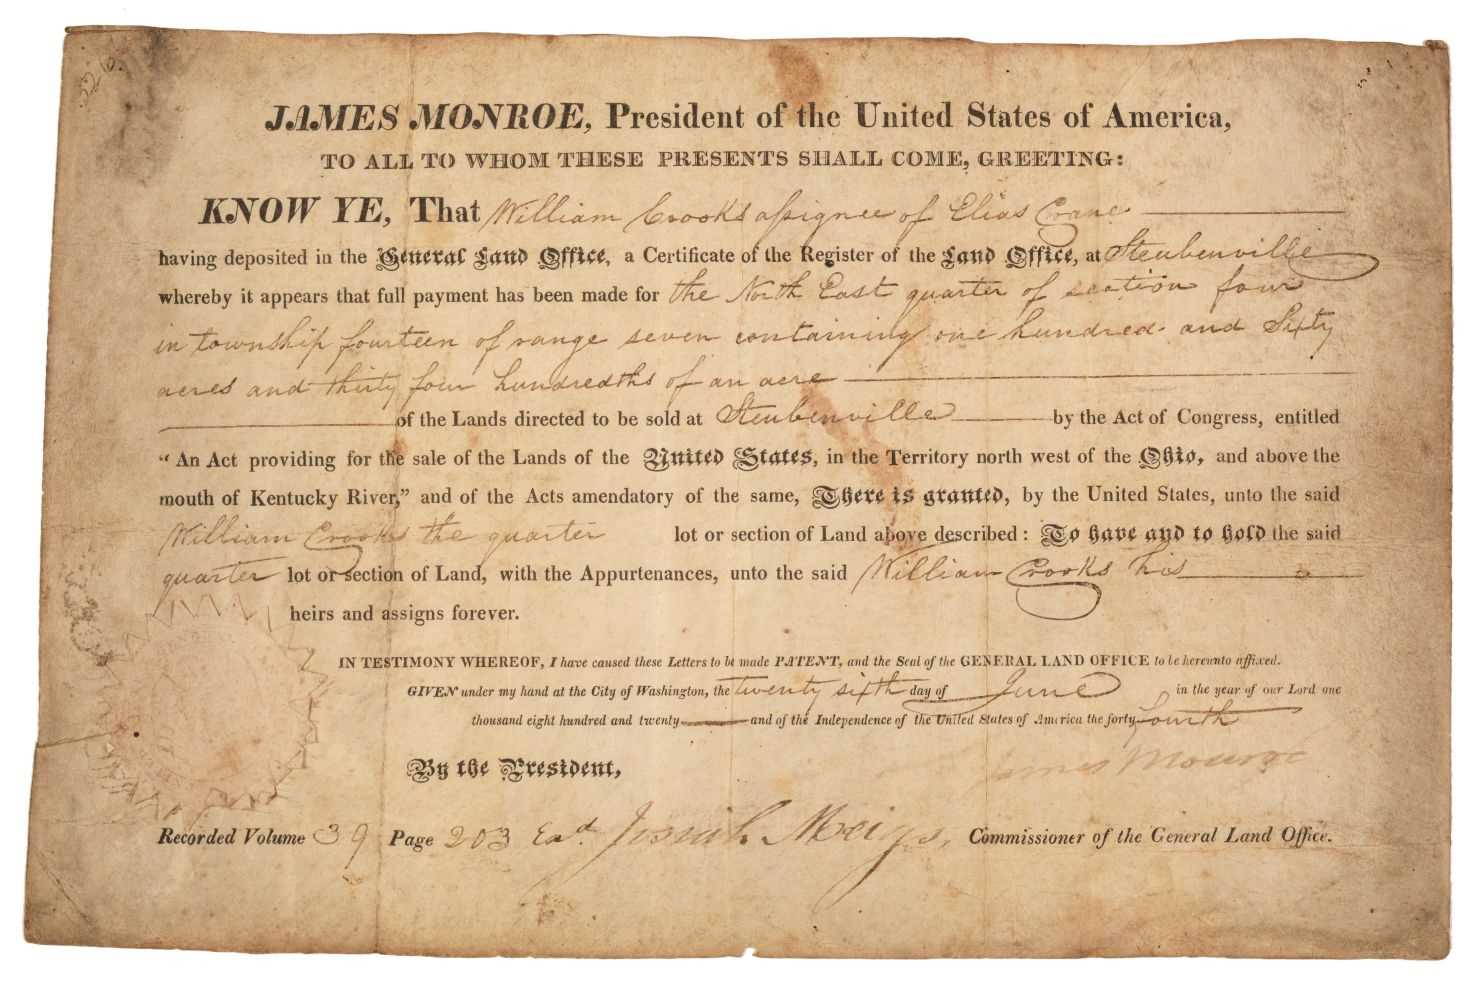 JAMES MONROE, President of the United States of America,
TO ALL TO WHOM THESE PRESENTS SHALL COME, GREETING:
KNOW YE, That William Crooks assignee of Elias Crane
having deposited in the General Land Office, a Certificate of the Register of the Land Office, at Steubenville
whereby it appears that full payment has been made for the North East quarter of section four
in township fourteen of range seven containing one hundred and Sixty
acres and thirty four hundredths of an acre
of the Lands directed to be sold at Steubenville by the Act of Congress, entitled
"An Act providing for the sale of the Lands of the United States, in the Territory north west of the Ohio, and above the
mouth of Kentucky River," and of the Acts amendatory of the same, There is granted, by the United States, unto the said
William Crooks the quarter lot or section of Land above described: To have and to hold the said
quarter lot or section of Land, with the Appurtenances, unto the said William Crooks his
heirs and assigns forever.
IN TESTIMONY WHEREOF, I have caused these Letters to be made PATENT, and the Seal of the GENERAL LAND OFFICE to be hereunto affixed.
GIVEN under my hand at the City of Washington, the twenty sixth day of June in the year of our Lord one
thousand eight hundred and twenty and of the Independence of the United States of America the forty fourth
James Monroe
By the President,
Recorded Volume 39 Page 203 Exd. Josiah Meigs, Commissioner of the General Land Office.